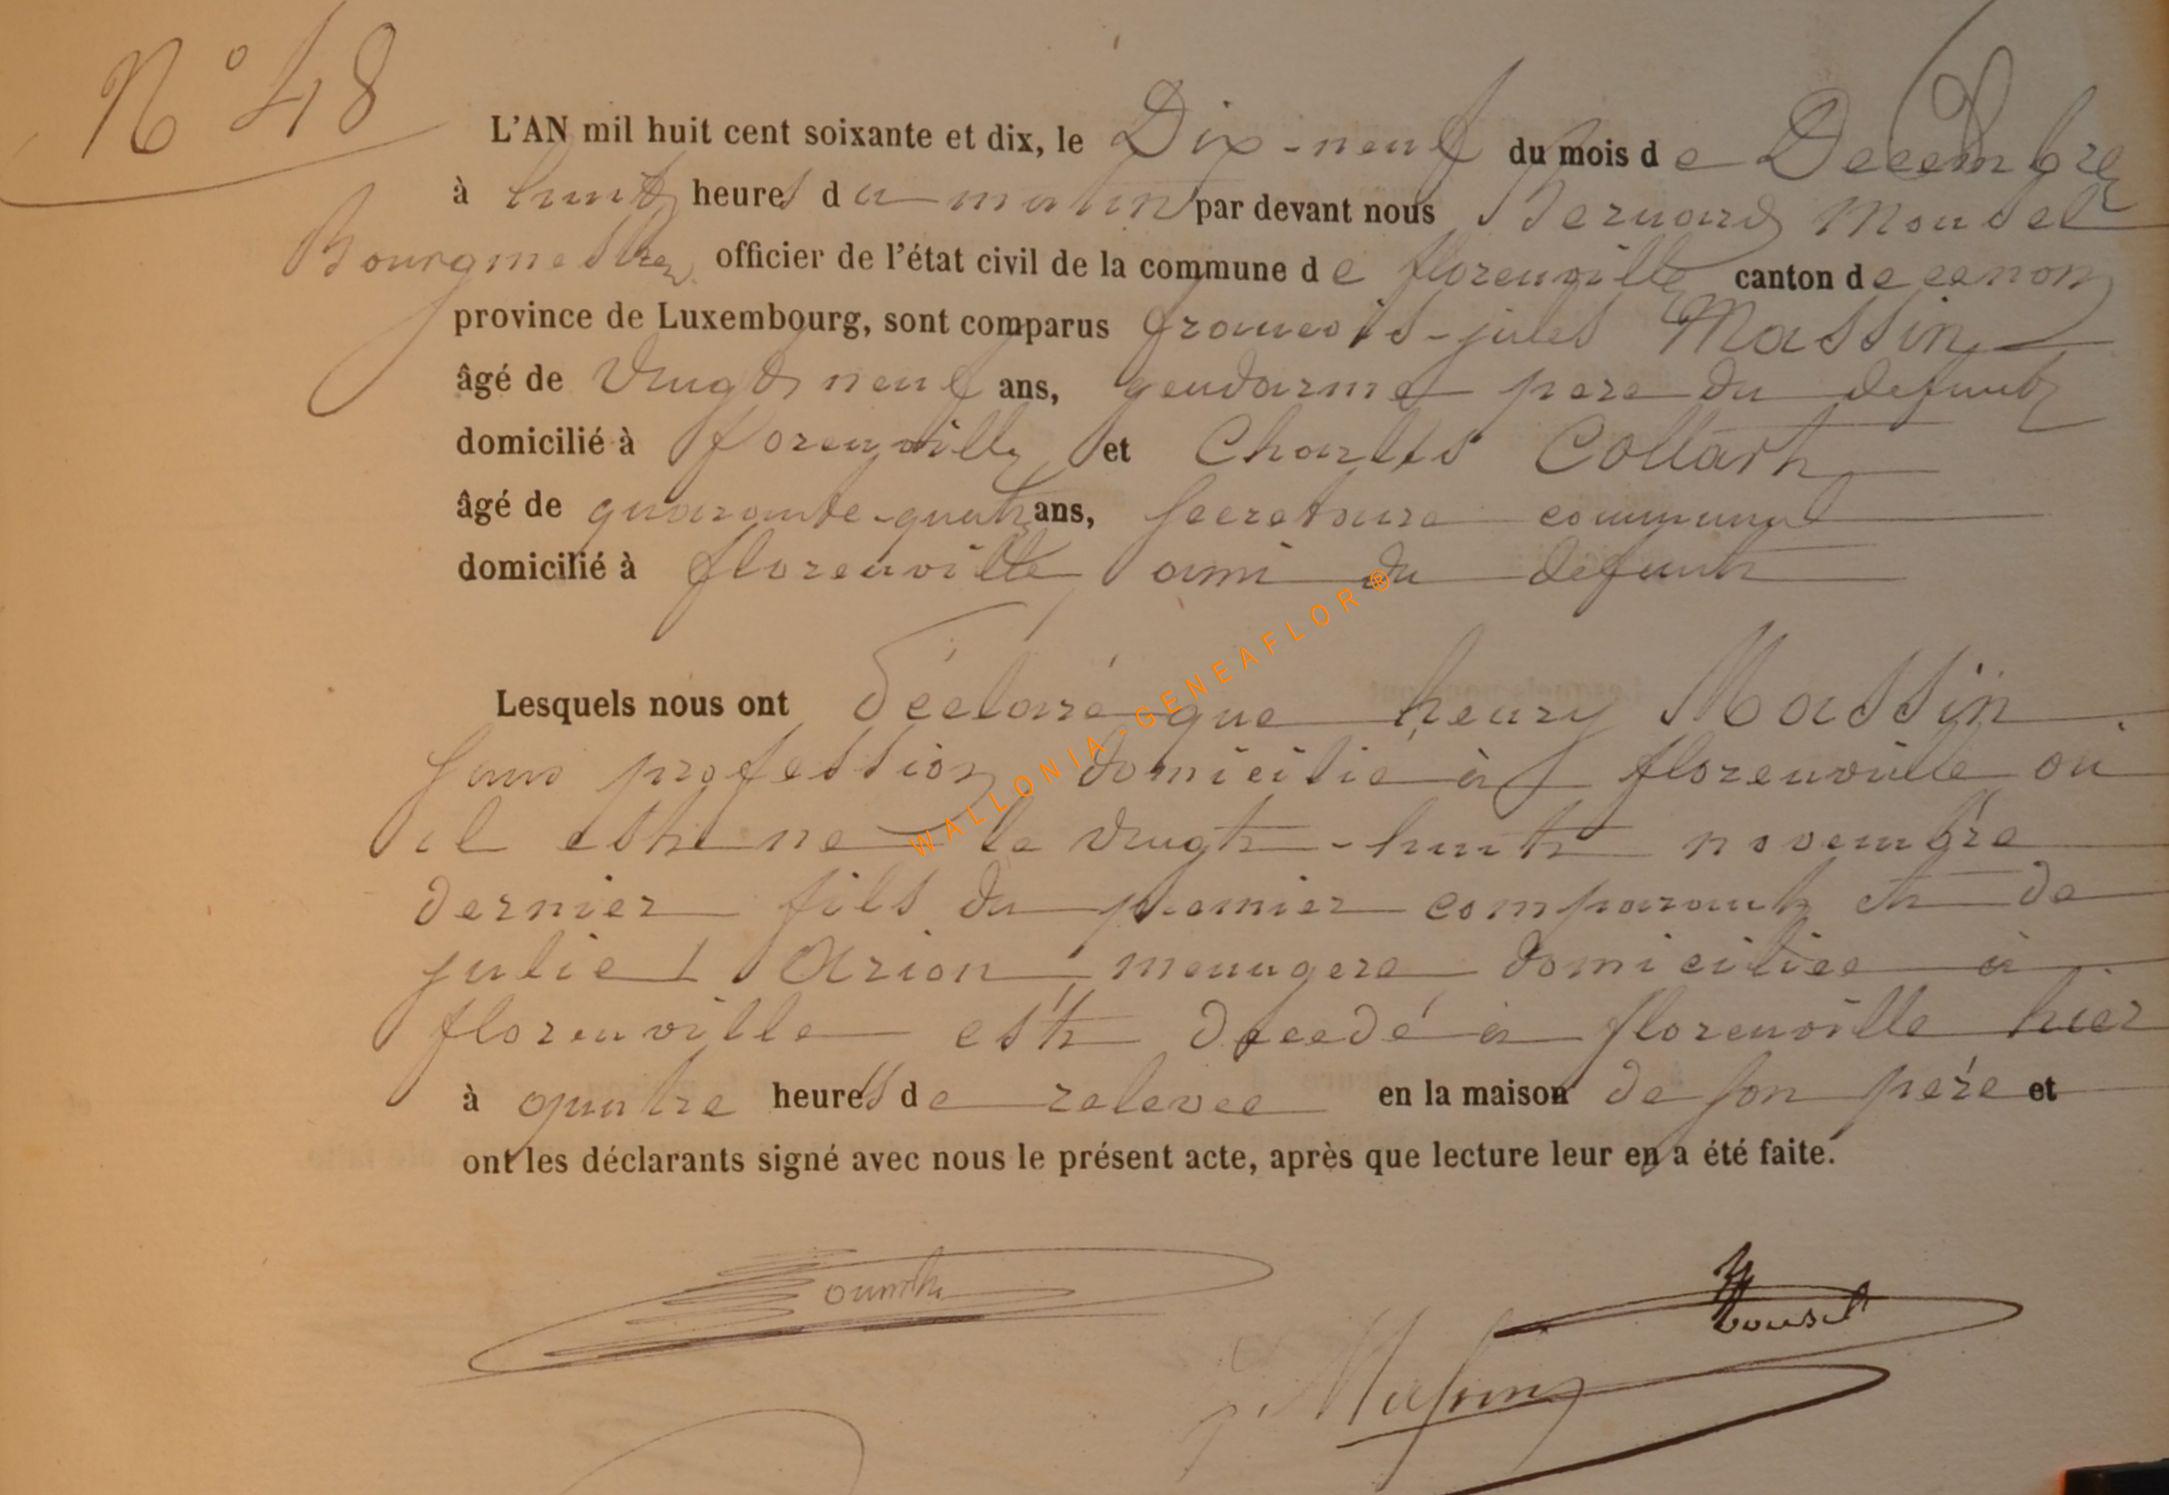 N° 48
L'AN mil huit cent soixante et dix, le Dix-neuf du mois de Decembre
à huit heures du matin par devant nous Bernard Mousel
Bourgmestre officier de l'état civil de la commune de florenville canton de
province de Luxembourg, sont comparus francois-jules Massin
âgé de Vingt neuf ans, gendarme pere du defunt
domicilié à florenville et Charles Collart
âgé de quarante-quatre ans, secretaire communal
domicilié à florenville ami du defunt
Lesquels nous ont déclaré que henry Massin
sans profession domicilié à florenville où
il est né le Vingt-huit novembre
dernier fils du premier comparant et de
julie Arion, menagere domiciliee à
florenville est décedé à florenville hier
à quatre heures de relevee en la maison de son père et
ont les déclarants signé avec nous le présent acte, après que lecture leur en a été faite.
Mousel
j. Massin
WALLONIA-GENEAFLOR®